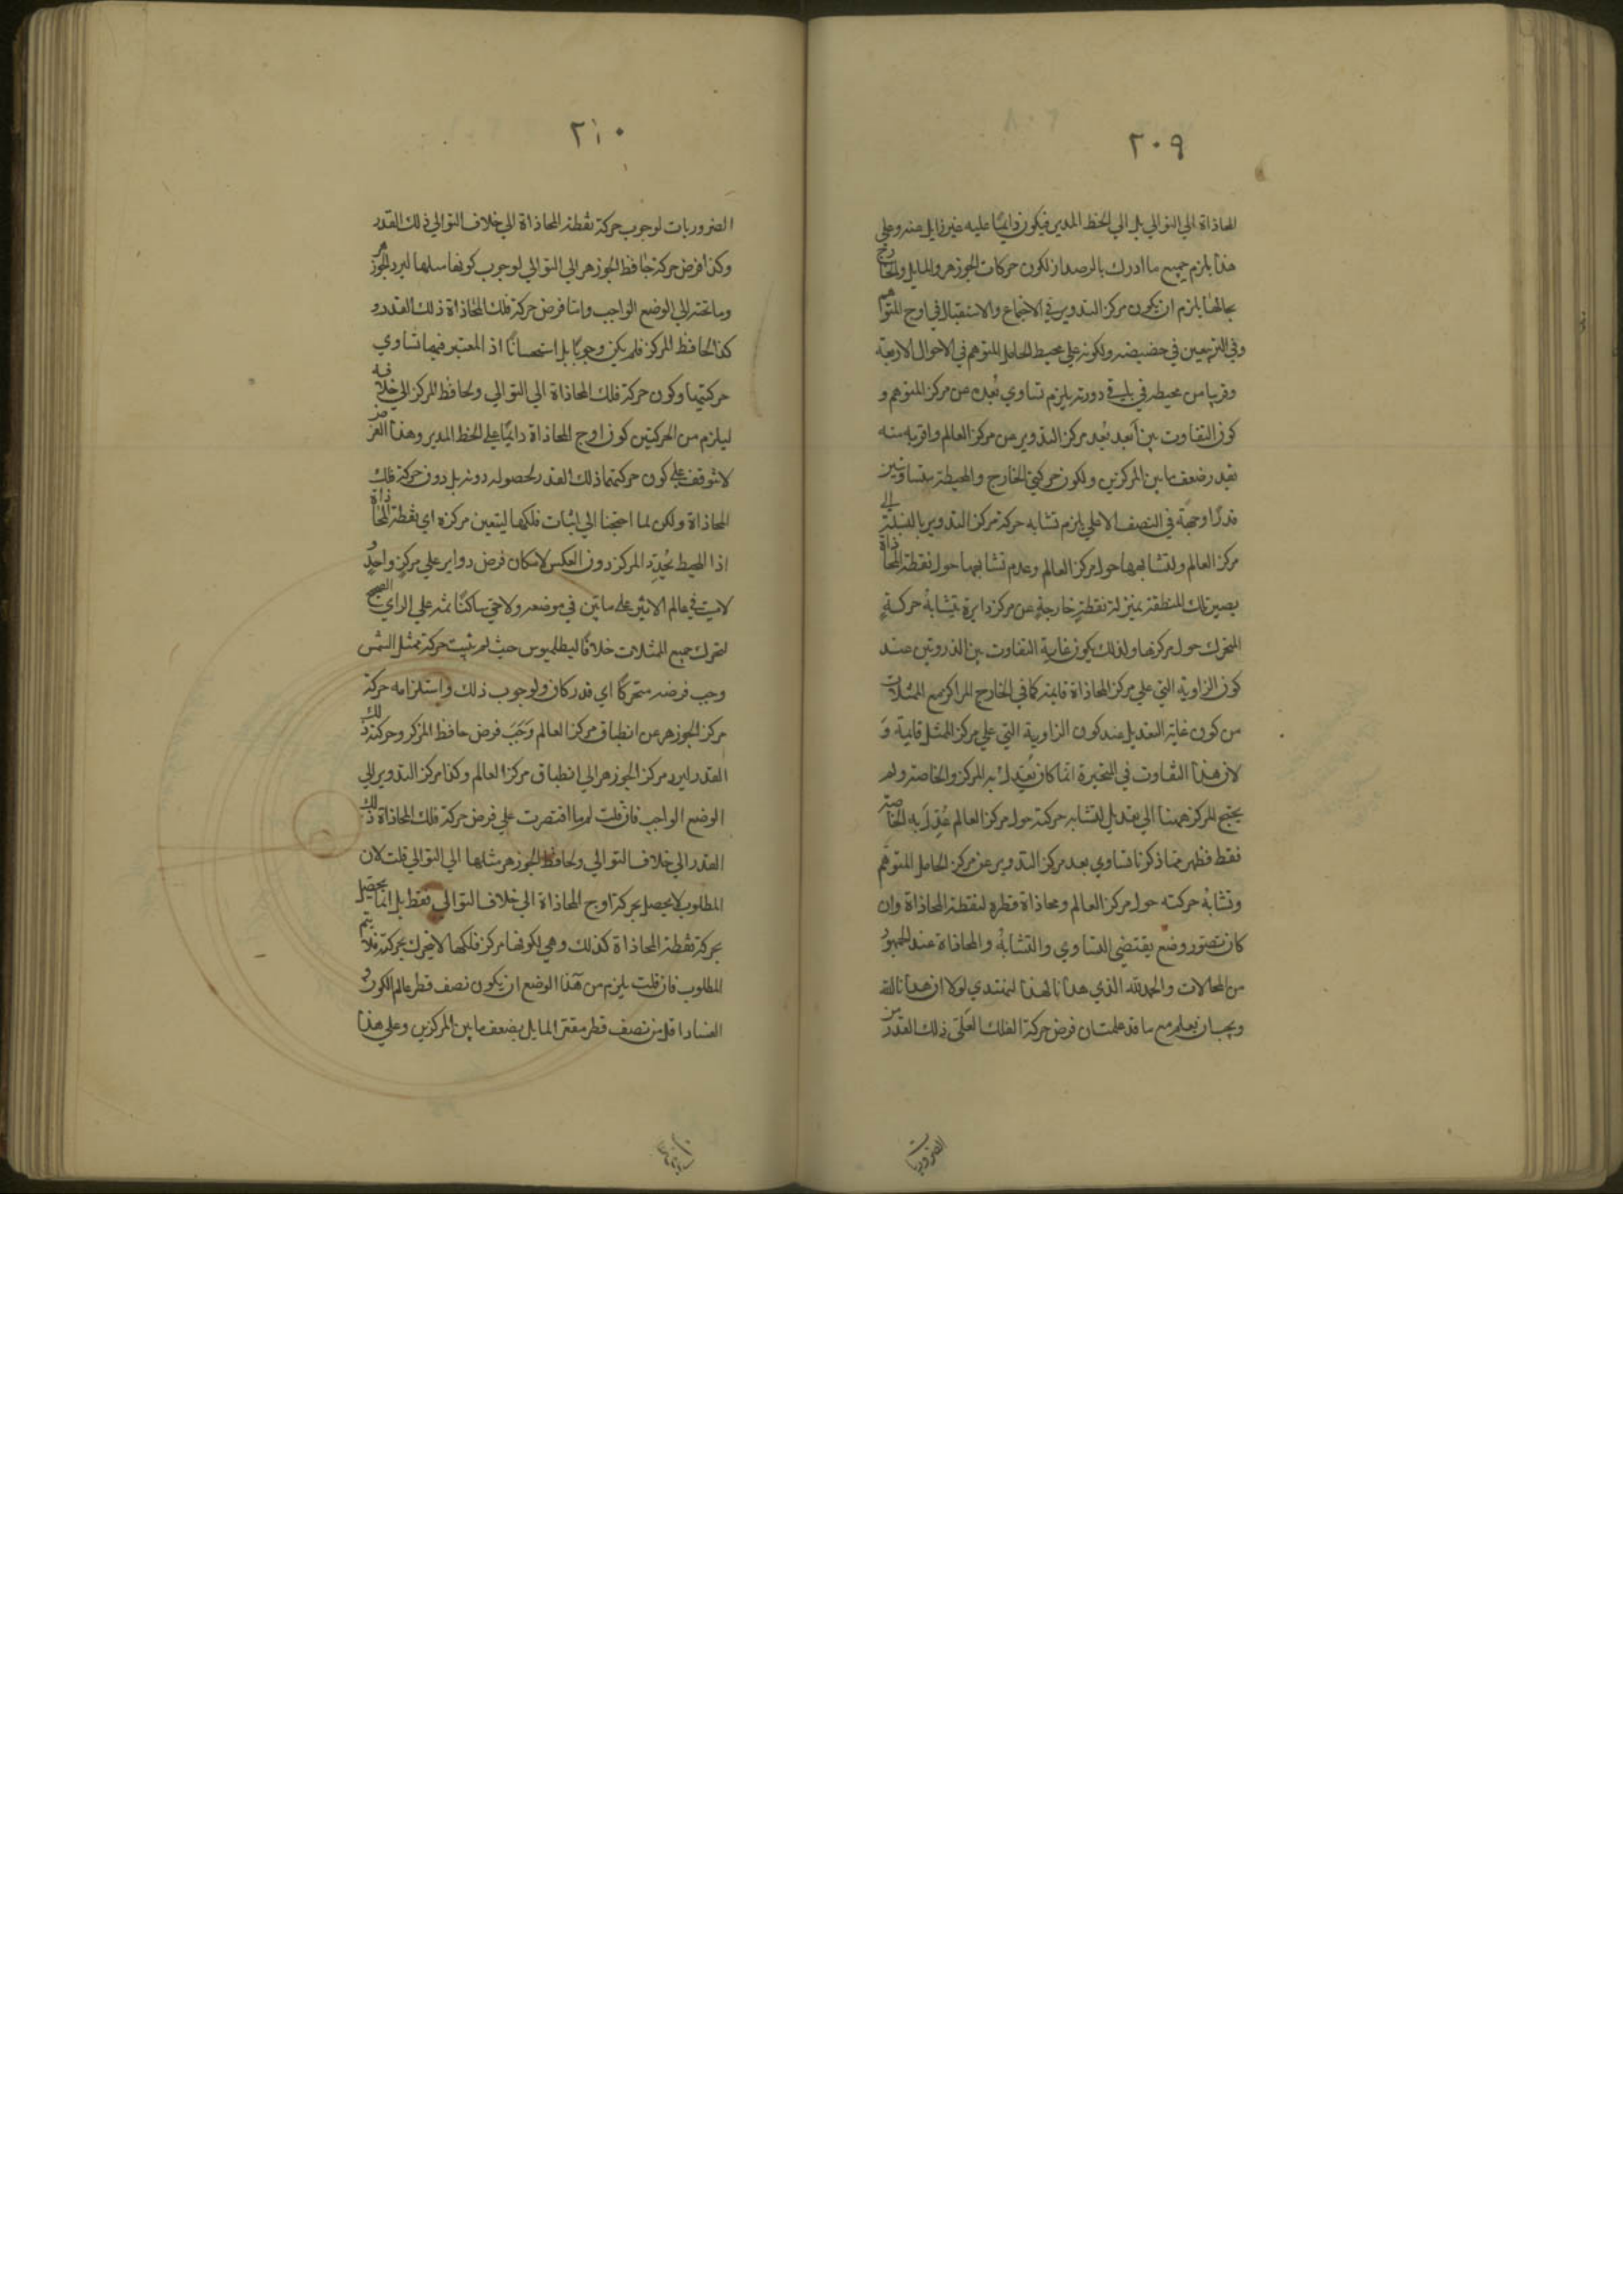 ٢٠٩
المحاذاة الي التوالي بل الي الخط المدير فيكون دايمًا عليه غير زايل عنه وعلي
هذا يلزم جميع ما ادرك بالرصد اذ لكون حركات الجوزهر والمايل والخارج
بحالها يلزم ان يكون مركز التدوير في الاجتماع والاستقبال في اوج المتوهم
وفي التربيعين في حضيضه ولكونه علي محيط الحامل المتوهم في الاحوال الاربعة
وقريبا من محيطه في باقي دورته يلزم تساوي بُعده عن مركز المتوهم و
كون التفاوت بين أبعد بُعد مركز التدوير من مركز العالم واقربه منه
بقدر ضعف ما بين المركزين ولكون حركتي الخارج والمحيطة متساويتين
قدرًا وجهةً في النصف الاعلي يلزم تشابه حركة مركز التدوير بالنسبة الي
مركز العالم ولتشابهها حول مركز العالم وعدم تشابهها حول نقطة المحاذاة
يصير تلك المنطقة بمنزلة نقطةٍ خارجةٍ عن مركز دايرة يتشابهُ حركةِ
المتحرك حول مركزها ولذلك يكون غاية التفاوت بين الذروتين عند
كون الزاوية التي علي مركز المحاذاة قايمة كما في الخارج المراكز مع الممثلات
من كون غاية التعديل عند كون الزاوية التي علي مركز الممثل قايمة وَ
لان هذا التفاوت في المتحيرة انما كان يُعَدِّل به المركز والخاصة ولم
يحتج المركز ههنا الي تعديل لتشابه حركته حول مركز العالم عُدِّلَ به الخاصة
فقط فظهر مما ذكرنا تساوي بعد مركز التدوير عن مركز الحامل المتوهم
وتشابهُ حركته حول مركز العالم ومحاذاة قطره لنقطة المحاذاة وان
كان تصور وضع يقتضي التساوي والتشابهُ والمحاذاة عند الجمهور
من المحالات والحمد لله الذي هدانا لهذا لنهتدي لولا ان هدانا الله
ويجب ان تعلم مع ما قد علمت ان فرض حركة الفلك ذلك القدر من
الضروريات
٢١٠
الضروريات لوجوب حركة نقطة المحاذاة الي خلاف التوالي ذلك القدر
وكذا فرض حركة حافظ الجوزهر الي التوالي لوجوب كونها مثلها ليرد الجوزهر
وما تحته الي الوضع الواجب واما فرض حركة فلك المحاذاة ذلك القدر و
كذا لحافظ المركز فلم يكن وجوبًا بل استحسانًا اذ المعتبر فيها تساوي
حركتيهما وكون حركة فلك المحاذاة الي التوالي ولحافظ المركز الي خلافه
ليلزم من الحركتين كون اوج المحاذاة دايمًا علي الخط المدير وهذا الغرض
لا يتوقف علي كون حركتهما ذلك القدر لحصوله دونه بل دون حركة فلك
المحاذاة ولكن لما احتجنا الي اثبات فلكها ليتعين مركزه اي نقطة المحاذاة
اذا المحيط يُحدِّد المركز دون العكس لامكان فرض دواير علي مركزٍ واحدٍ و
لايت في عالم الاثير علي ماتين في موضعه ولا حتي ساكنًا ثمه علي الراي الصحيح
لتحرك جميع الممثلات خلافًا لبطلميوس حيث لم يثبت حركة ممثل الشمس
وجب فرضه متحركًا اي قدر كان ولوجوب ذلك واستلزامه حركة
مركز الجوزهر عن انطباق مركز العالم وَجَبَ فرض حافظ المركز وحركته ذلك
القدر ليرد مركز الجوزهر الي انطباق مركز العالم وكذا مركز التدوير الي
الوضع الواجب فان قلت لم ما اقتصرت علي فرض حركة فلك المحاذاة ذلك
القدر الي خلاف التوالي ولحافظ الجوزهر مثلها الي التوالي قلت لان
المطلوب لا يحصل بحركة اوج المحاذاة الي خلاف التوالي فقط بل انما يحصل
بحركة نقطة المحاذاة كذلك وهي لكونها مركز فلكها لا يتحرك بحركته فلا يتم
المطلوب فان قلت يلزم من هذا الوضع ان يكون نصف قطر عالم الكون و
الفساد اقل من نصف قطر مقعر المايل بضعف ما بين المركزين وعلي هذا